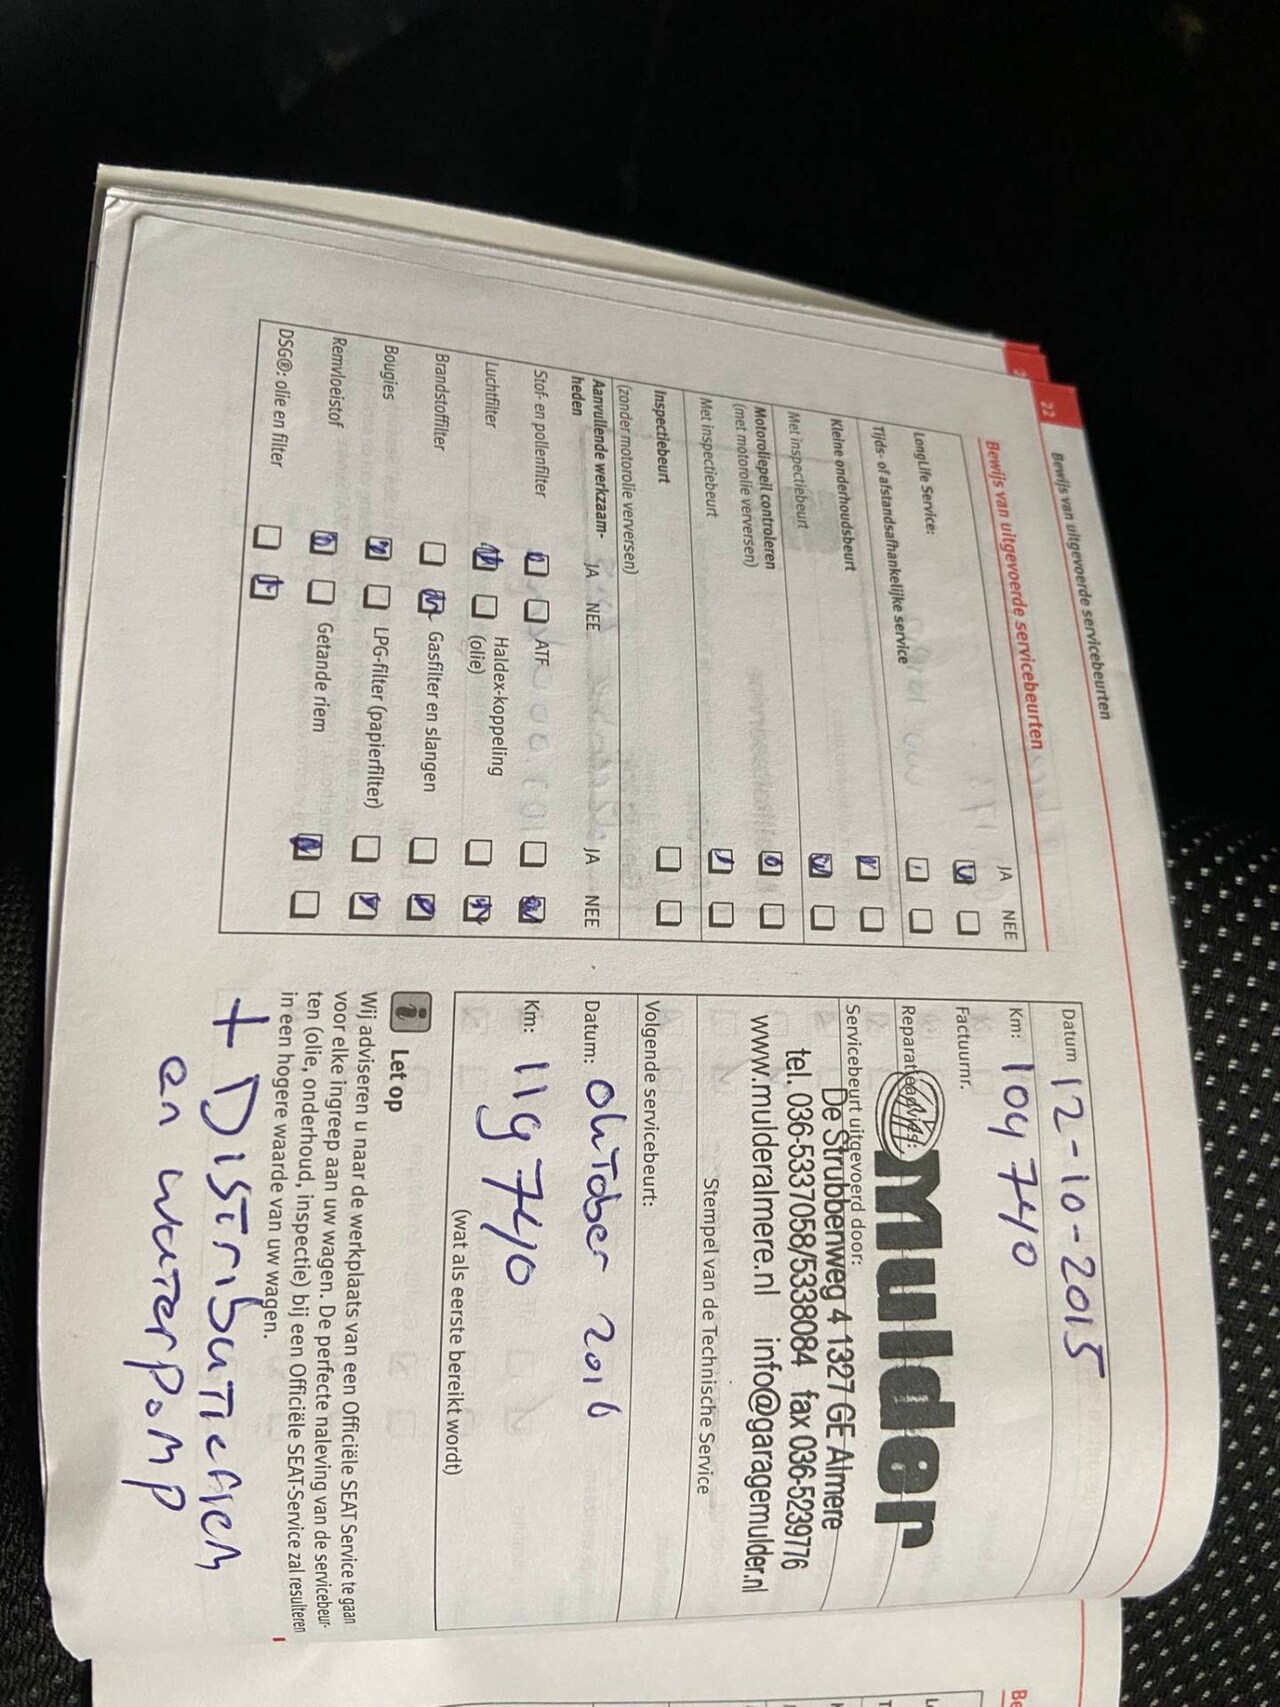 22
Bewijs van uitgevoerde servicebeurten
Bewijs van uitgevoerde servicebeurten
JA NEE
LongLife Service:
Tijds- of afstandsafhankelijke service
Kleine onderhoudsbeurt
Met inspectiebeurt
Motoroliepeil controleren
(met motorolie verversen)
Met inspectiebeurt
Inspectiebeurt
(zonder motorolie verversen)
Aanvullende werkzaam-
heden
JA NEE
JA NEE
Stof- en pollenfilter
ATF
Luchtfilter
Haldex-koppeling
(olie)
Brandstoffilter
Gasfilter en slangen
Bougies
LPG-filter (papierfilter)
Remvloeistof
Getande riem
DSG®: olie en filter
Datum 12-10-2015
Km: 109740
Factuurnr.
Mulder
Servicebeurt uitgevoerd door:
De Strubbenweg 4 1327 GE Almere
tel. 036-5337058/5338084 fax 036-5239776
www.mulderalmere.nl info@garagemulder.nl
Stempel van de Technische Service
Volgende servicebeurt:
Datum: oktober 2016
Km: 119740
(wat als eerste bereikt wordt)
i Let op
Wij adviseren u naar de werkplaats van een Officiële SEAT Service te gaan
voor elke ingreep aan uw wagen. De perfecte naleving van de servicebeur-
ten (olie, onderhoud, inspectie) bij een Officiële SEAT-Service zal resulteren
in een hogere waarde van uw wagen.
+ Distributieriem
en waterpomp